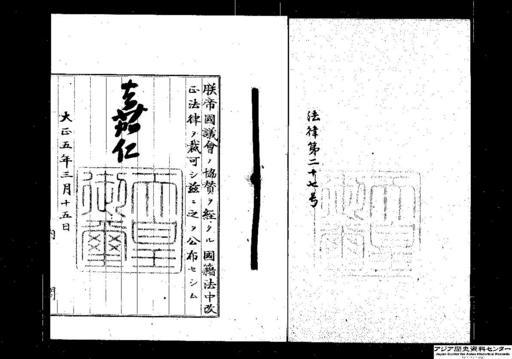 法律第二十七号
朕帝國議會ノ協賛ヲ經タル國籍法中改
正法律ヲ裁可シ茲ニ之ヲ公布セシム
嘉仁
天皇
御璽
大正五年三月十五日
内
閣
アジア歴史資料センター
Japan Center for Asian Historical Records